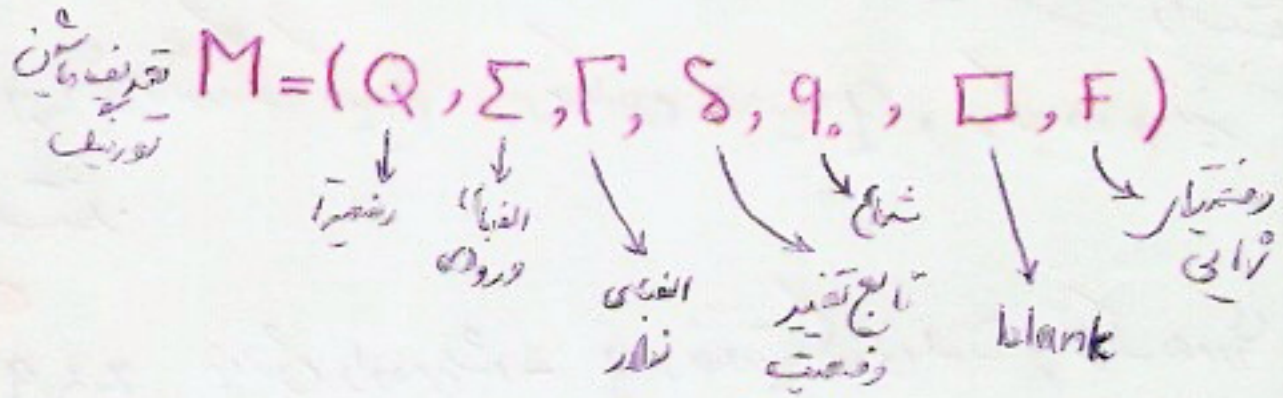 تعریف ماشین
تورینگ
M = (Q , Σ , Γ , δ , q₀ , □ , F )
وضعیتها
الفبای
ورودی
الفبای
نوار
تابع تغییر
وضعیت
شروع
blank
وضعیتهای
نهایی